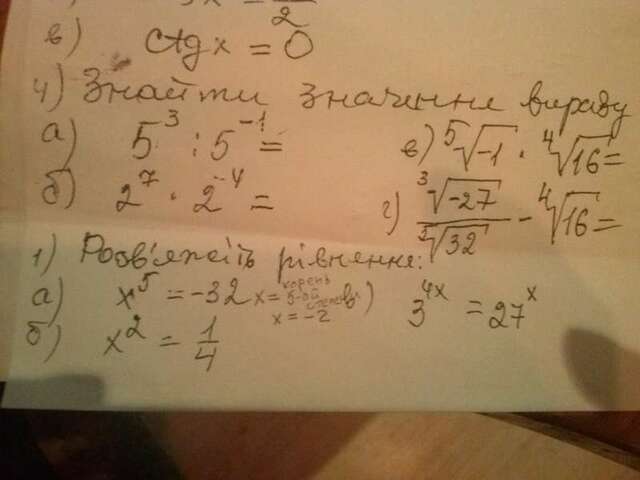 2
в) ctg x = 0
4) Знайти значення виразу
а) 5³ : 5⁻¹ =
б) 2⁷ · 2⁻⁴ =
в) ⁵√-1 · ⁴√16 =
г) ³√-27 / ⁵√32 - ⁴√16 =
1) Розв'яжіть рівняння:
а) x⁵ = -32 x = корень 5-ой степени
x = -2
б) x² = 1/4
в) 3⁴ˣ = 27ˣ